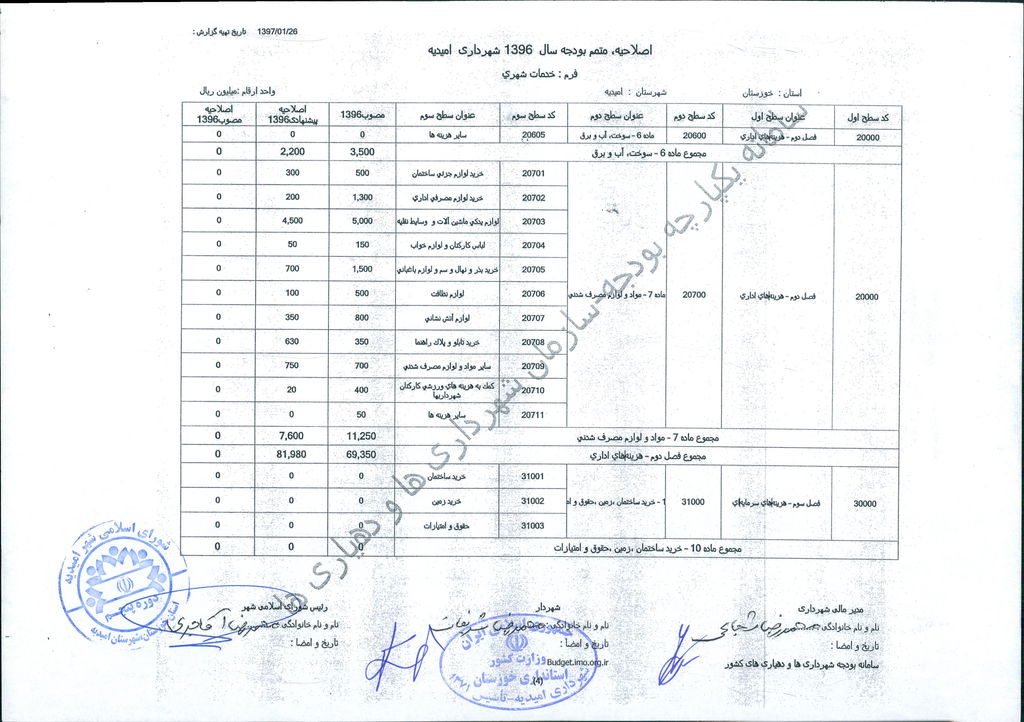 تاریخ تهیه گزارش : 1397/01/26
اصلاحیه، متمم بودجه سال 1396 شهرداری امیدیه
فرم : خدمات شهري
استان : خوزستان شهرستان : امیدیه واحد ارقام :میلیون ریال
کد سطح اول عنوان سطح اول کد سطح دوم عنوان سطح دوم کد سطح سوم عنوان سطح سوم مصوب1396 اصلاحیه پیشنهادی1396 اصلاحیه مصوب1396
20000 فصل دوم - هزینه‌های اداری 20600 ماده 6 - سوخت، آب و برق 20605 سایر هزینه ها 0 0 0
مجموع ماده 6 - سوخت، آب و برق 3,500 2,200 0
20701 خرید لوازم جزئی ساختمان 500 300 0
20702 خرید لوازم مصرفی اداری 1,300 200 0
20703 لوازم یدکي ماشین آلات و وسایط نقلیه 5,000 4,500 0
20704 لباس کارکنان و لوازم خواب 150 50 0
20705 خرید بذر و نهال و سم و لوازم باغباني 1,500 700 0
20000 فصل دوم - هزینه‌های اداری 20700 ماده 7 - مواد و لوازم مصرف شدني 20706 لوازم نظافت 500 100 0
20707 لوازم آتش نشاني 800 350 0
20708 خرید تابلو و پلاك راهنما 350 630 0
20709 سایر مواد و لوازم مصرف شدني 700 750 0
20710 کمك به هزینه هاي ورزشي کارکنان شهرداریها 400 20 0
20711 سایر هزینه ها 50 0 0
مجموع ماده 7 - مواد و لوازم مصرف شدني 11,250 7,600 0
مجموع فصل دوم - هزینه‌های اداری 69,350 81,980 0
31001 خرید ساختمان 0 0 0
30000 فصل سوم - هزینه‌های سرمایه‌ای 31000 1 - خرید ساختمان ،زمین ،حقوق و ام 31002 خرید زمین 0 0 0
31003 حقوق و امتیازات 0 0 0
مجموع ماده 10 - خرید ساختمان ،زمین ،حقوق و امتیازات 0 0 0
سامانه یکپارچه بودجه-سازمان شهرداری ها و دهیاری ها
مدیر مالی شهرداری شهردار رئیس شورای اسلامی شهر
نام و نام خانوادگی: نام و نام خانوادگی: نام و نام خانوادگی:
تاریخ و امضا : تاریخ و امضا : تاریخ و امضا :
سامانه بودجه شهرداری ها و دهیاری های کشور Budget.imo.org.ir
(4)
شورای اسلامی شهر امیدیه
استان خوزستان،شهرستان امیدیه
وزارت کشور
استانداری خوزستان
شهرداری امیدیه-تاسیس